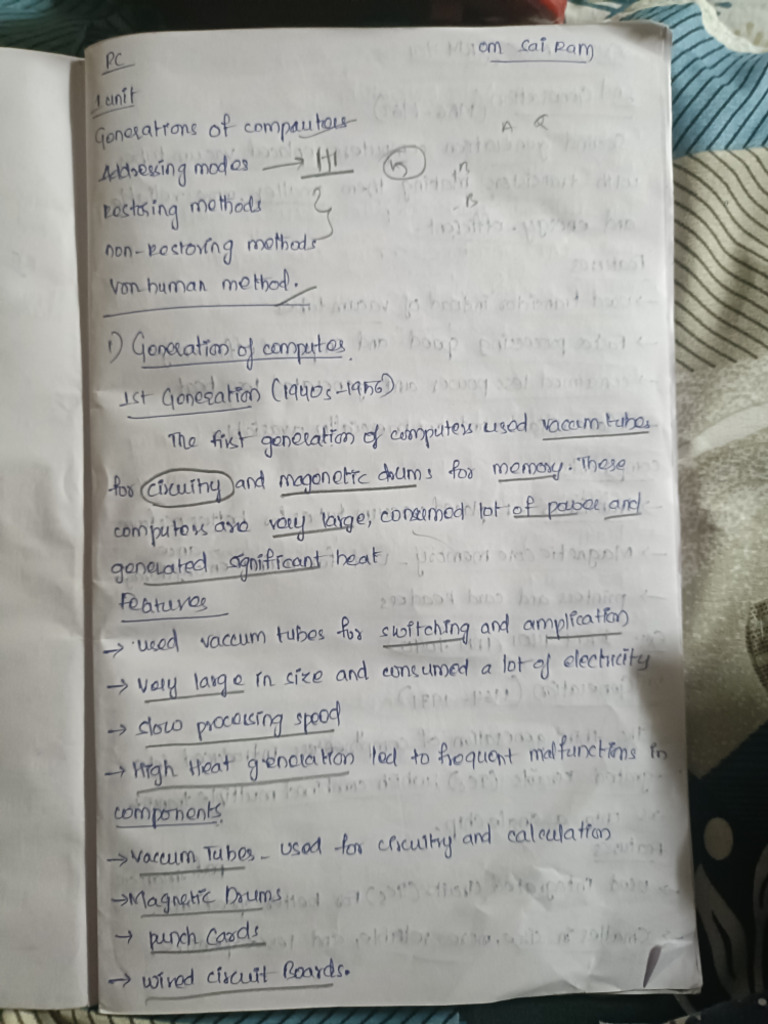 PC
om Sai Ram
1 unit
Generations of compauters
A &
Addressing modes → H1 5
n
Restoring methods
B
non-Restoring methods
Von human method.
1) Generation of computes.
1st Generation (1940s-1956)
The first generation of computers used vaccum-tubes
for circuitry and magenetic drums for memory. These
computers are very large, consumed lot of power and
generated significant heat.
Features
→ used vaccum tubes for switching and amplication
→ very large in size and consumed a lot of electricity
→ slow processing speed
→ High Heat generation led to frequent malfunctions in
components.
→ Vaccum Tubes - used for circuitry and calculation
→ Magnetic Drums
→ punch Cards
→ wired circuit Boards.